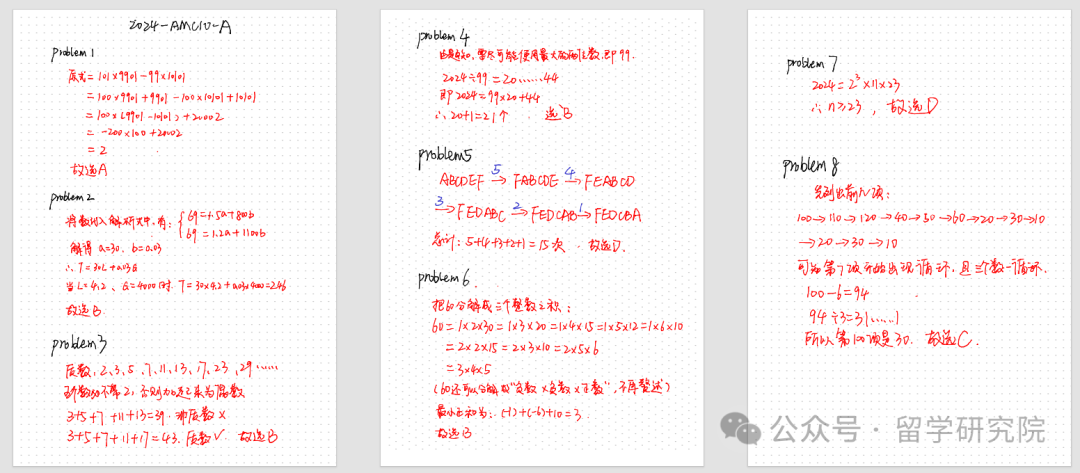 2024-AMC10-A
problem 1
原式= 101×9901-99×10101
=100×9901+9901-100×10101+10101
=100×(9901-10101)+20002
= -200×100+20002
= 2
故选A
problem 2
将数代入解析式中,有: { 69=1.5a+800b
69=1.2a+1100b
解得 a=30. b=0.03
∴ T=30L+0.03G
当L=4.2、G=4000时. T=30×4.2+0.03×4000=246
故选B
problem3
质数: 2、3、5、7、11、13、17、23、29……
3+5+7+11+13=39. 非质数 ×
3+5+7+11+17=43. 质数√. 故选B
problem 4
由题知,需尽可能使用最大的两位数,即99.
2024÷99=20……44
即2024=99×20+44
∴ 20+1=21个. 选B
problem5
ABCDEF 5→ FABCDE 4→ FEABCD
3→ FEDABC 2→ FEDCAB 1→ FEDCBA
总计: 5+4+3+2+1=15次. 故选D.
problem 6.
把60分解成三个整数之积:
60=1×2×30=1×3×20=1×4×15=1×5×12=1×6×10
=2×2×15=2×3×10=2×5×6
=3×4×5
(60还可以分解成"负数×负数×正数",不再赘述)
最小正和为: (-1)+(-6)+10=3.
故选B
problem 7
2024=2³×11×23
∴ n≥23, 故选D
problem 8
先列出前几项:
100→110→120→40→50→60→20→30→10
→20→30→10
可知第7项开始出现循环,且三个数一循环.
100-6=94
94÷3=31……1
所以第100项是30. 故选C.
公众号·留学研究院